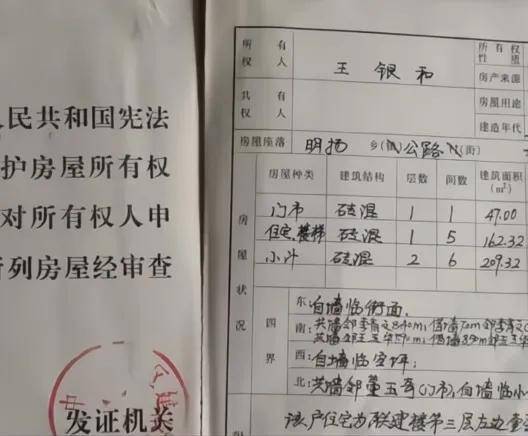 人民共和国宪法
护房屋所有权
对所有权人申
所列房屋经审查
发证机关
所有权人
王银和
所有权性质
房产来源
共有权人
房屋用途
建造年代
房屋座落
明扬 乡(镇)公路 村(街)
房屋状况
房屋种类 建筑结构 层数 间数 建筑面积(m²)
门市 砖混 1 1 47.00
住宅、楼梯 砖混 1 5 162.32
小计 砖混 2 6 209.32
四界
东: 自墙临街面.
南: 共墙邻李青
西: 自墙临空坪;
北: 共墙邻董五哥(门市),自墙临小
该户住宅为联建楼第三层左边套